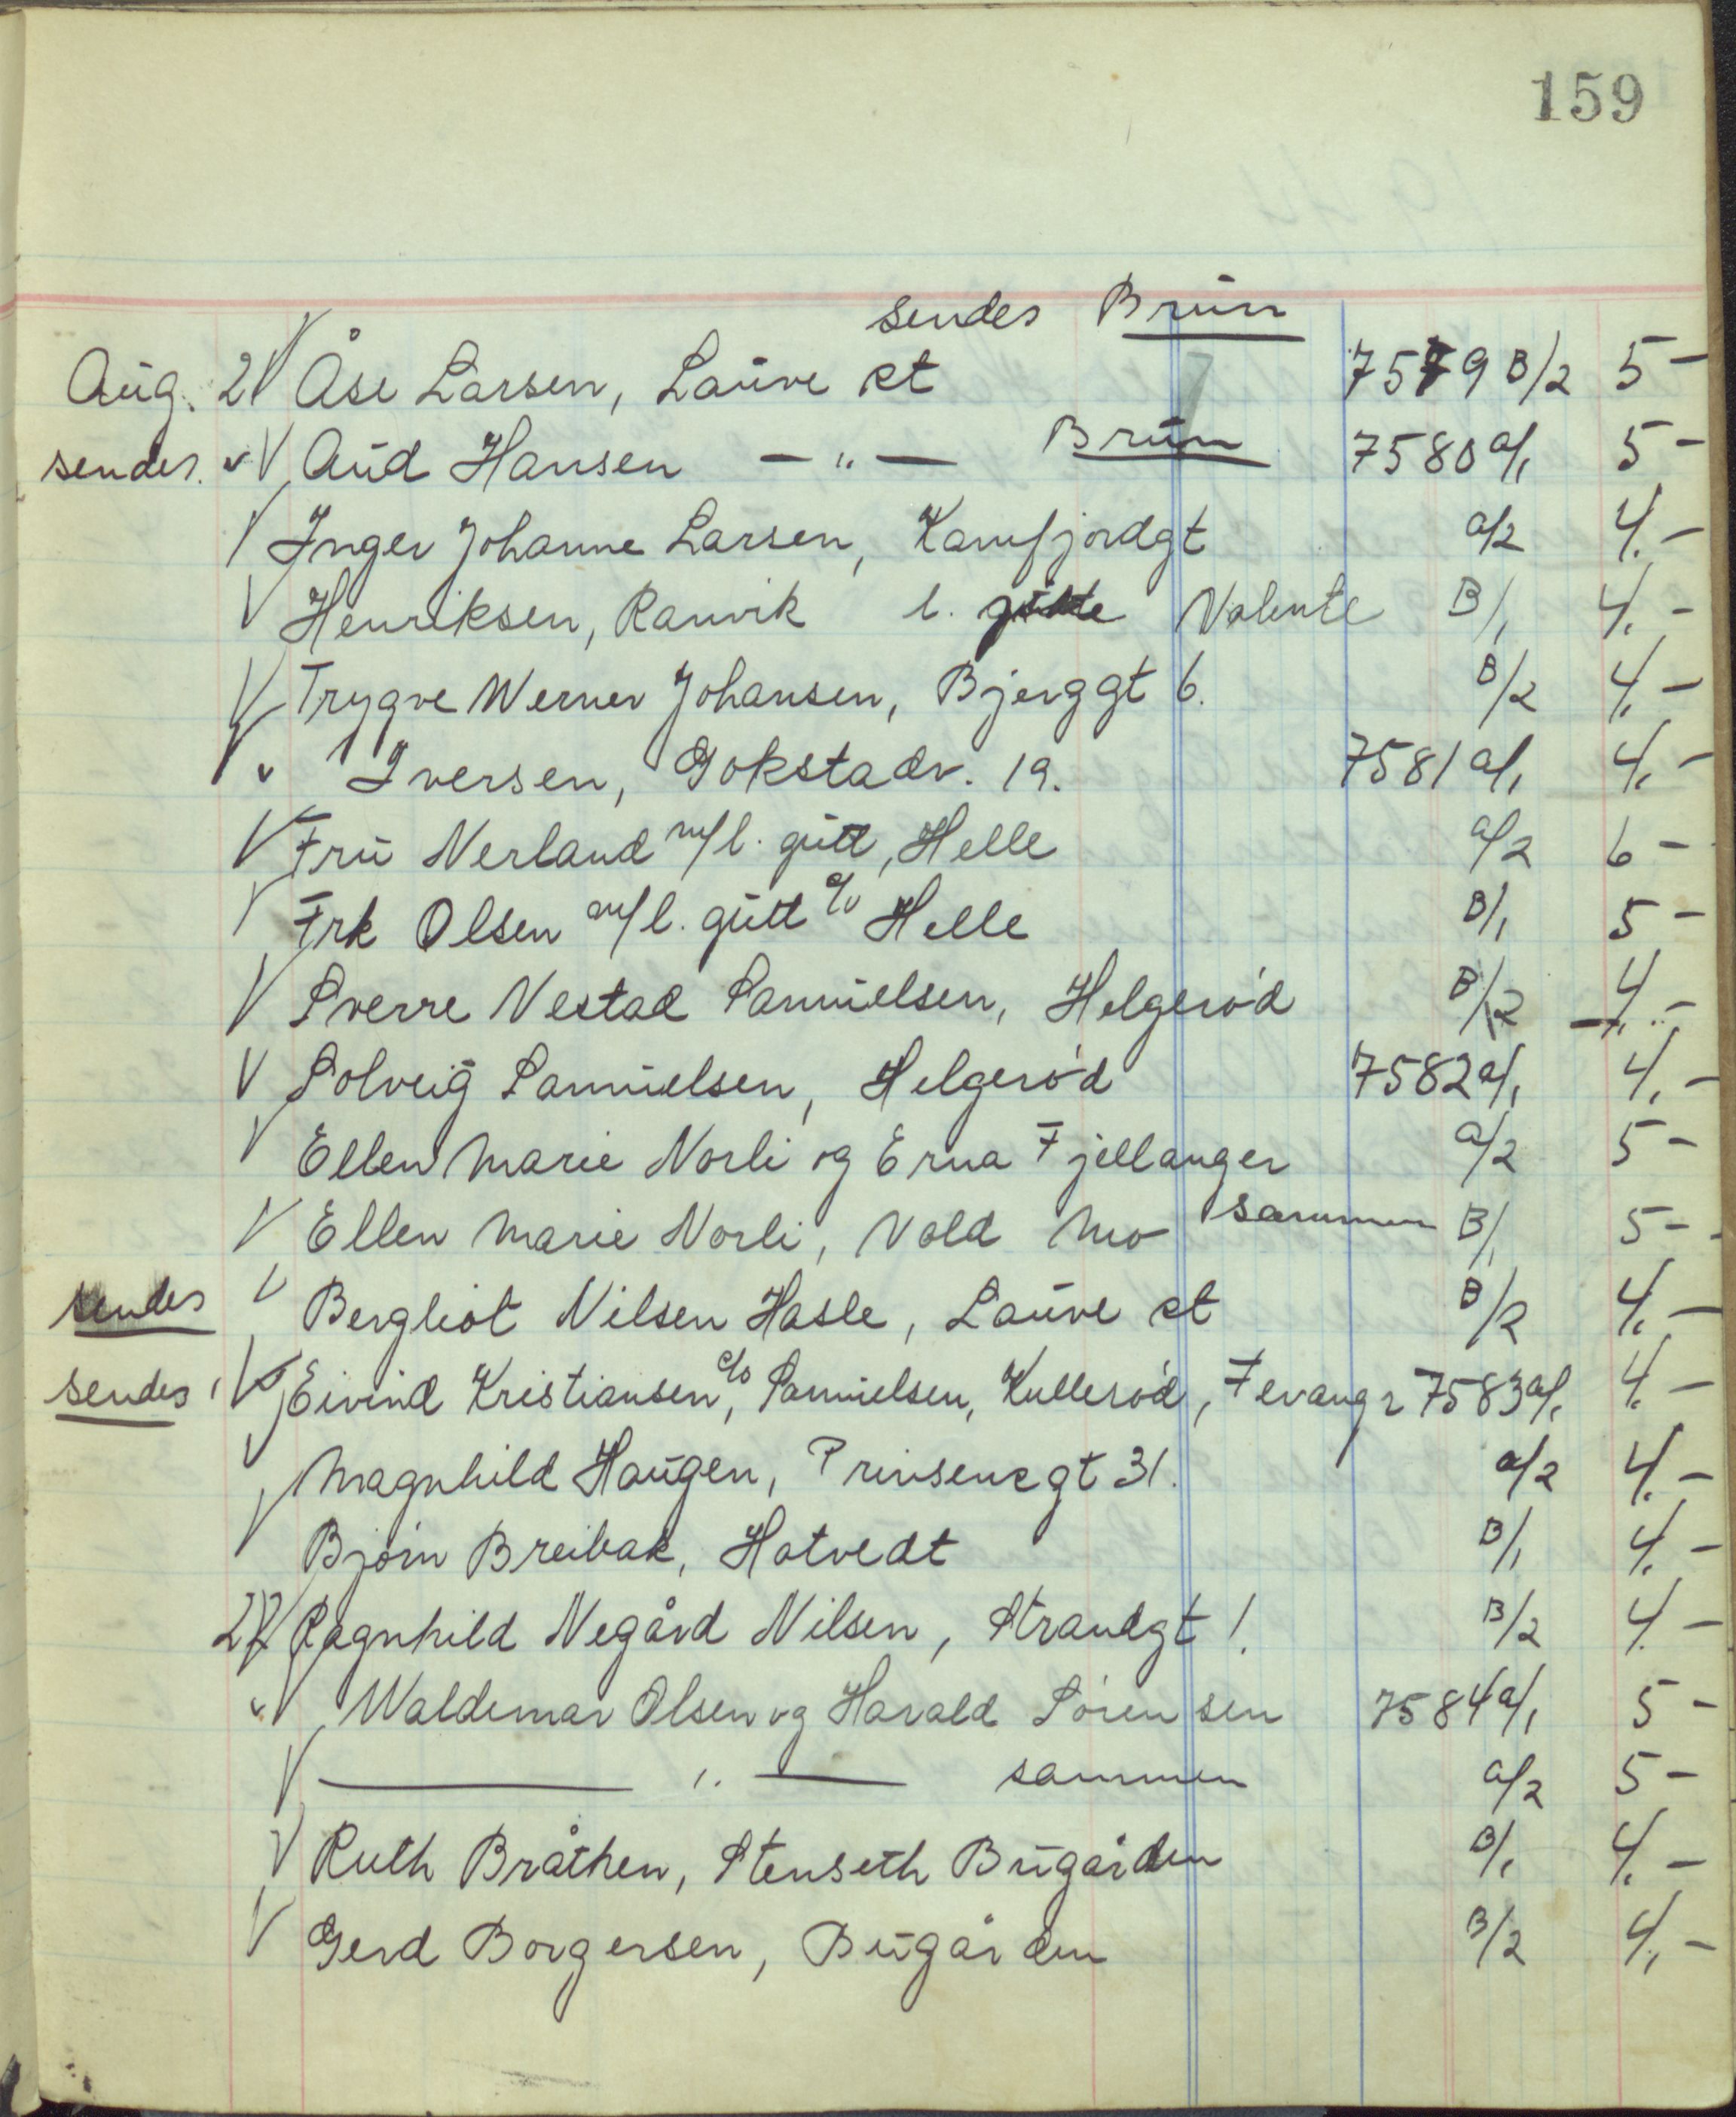 159
sendes Brun
Aug. 21 Åse Larsen, Lauve st 7579 B/2 5-
sendes. " Aud Hansen — " — Brun 7580 a/1 5-
Inger Johanne Larsen, Kamfjordgt a/2 4.-
Henriksen, Ranvik l. gutte Valente B/1 4.-
Trygve Werner Johansen, Bjerggt 6. B/2 4.-
" Iversen, Gokstadv. 19. 7581 a/1 4.-
Fru Nerland m/l. gutt, Helle a/2 6-
Frk Olsen m/l. gutt c/o Helle B/1 5-
Sverre Nestad Samuelsen, Helgerød B/2 4.-
Solveig Samuelsen, Helgerød 7582 a/1 4.-
Ellen Marie Norli og Erna Fjellanger a/2 5-
Ellen Marie Norli, Vold Mo sammen B/1 5-
sendes Bergliot Nilsen Hasle, Lauve st B/2 4.-
sendes Eivind Kristiansen, c/o Samuelsen, Kullerød, Fevang 2 7583 a/1 4.-
Magnhild Haugen, Prinsensgt 31. a/2 4.-
Bjørn Breibak, Hotvedt B/1 4.-
22 Ragnhild Negård Nilsen, Strandgt 1. B/2 4.-
" Waldemar Olsen og Harald Sørensen 7584 a/1 5-
— " — sammen a/2 5-
Ruth Bråthen, Stenseth Bugården B/1 4.-
Gerd Borgersen, Bugården B/2 4.-